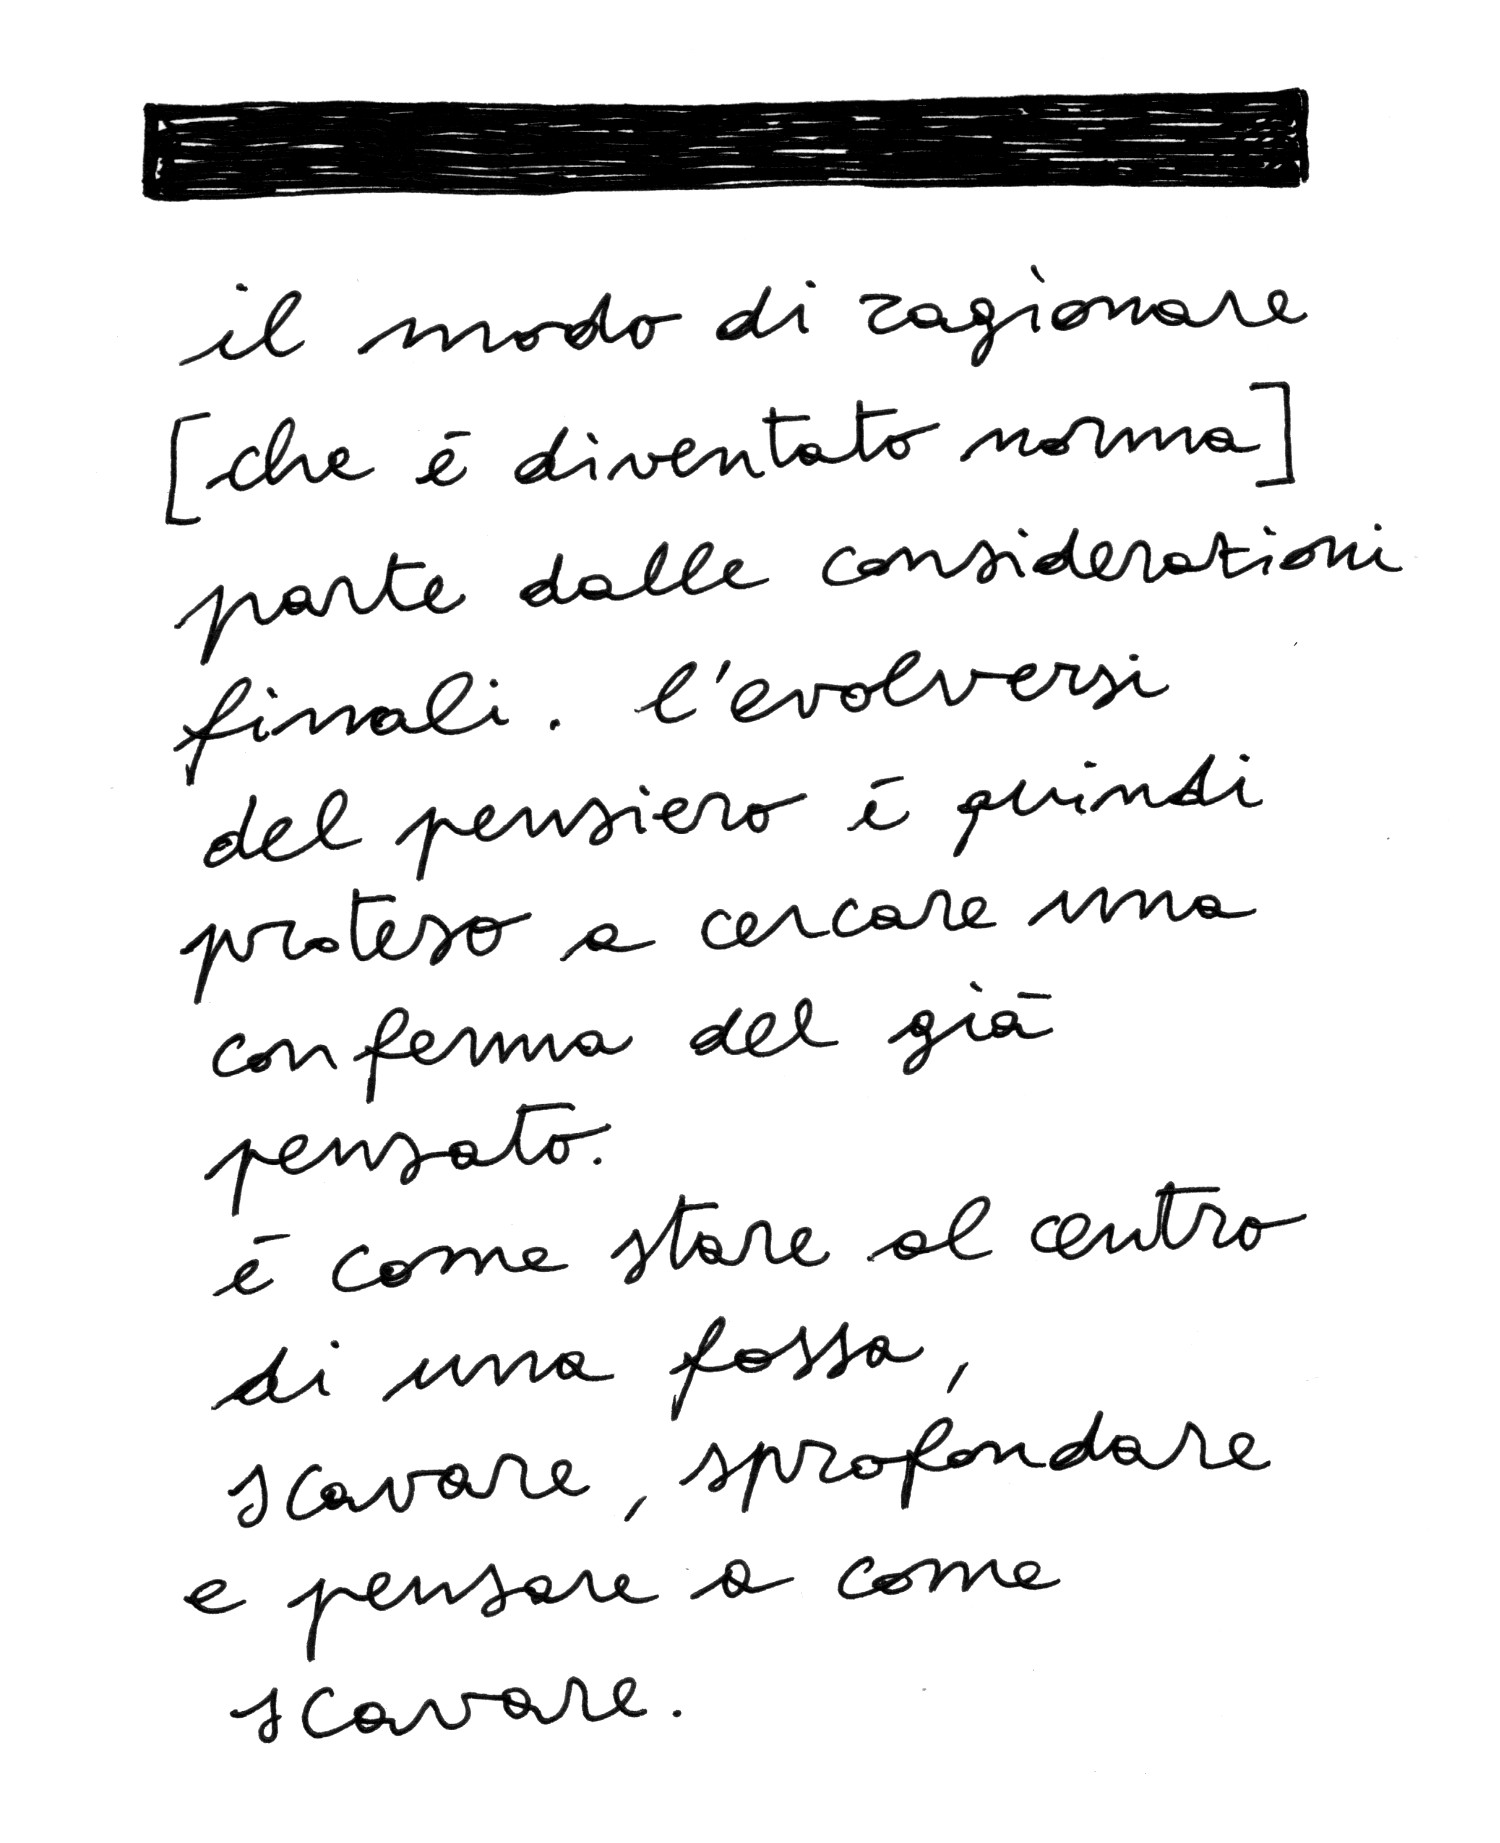 il modo di ragionare
[che è diventato norma]
parte dalle considerazioni
finali. l'evolversi
del pensiero è quindi
proteso a cercare una
conferma del già
pensato.
è come stare al centro
di una fossa,
scavare, sprofondare
e pensare a come
scavare.